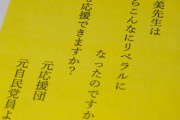 美先生は
らこんなにリベラルに
なったのですか
応援できますか?
元応援団
元自民党員よ